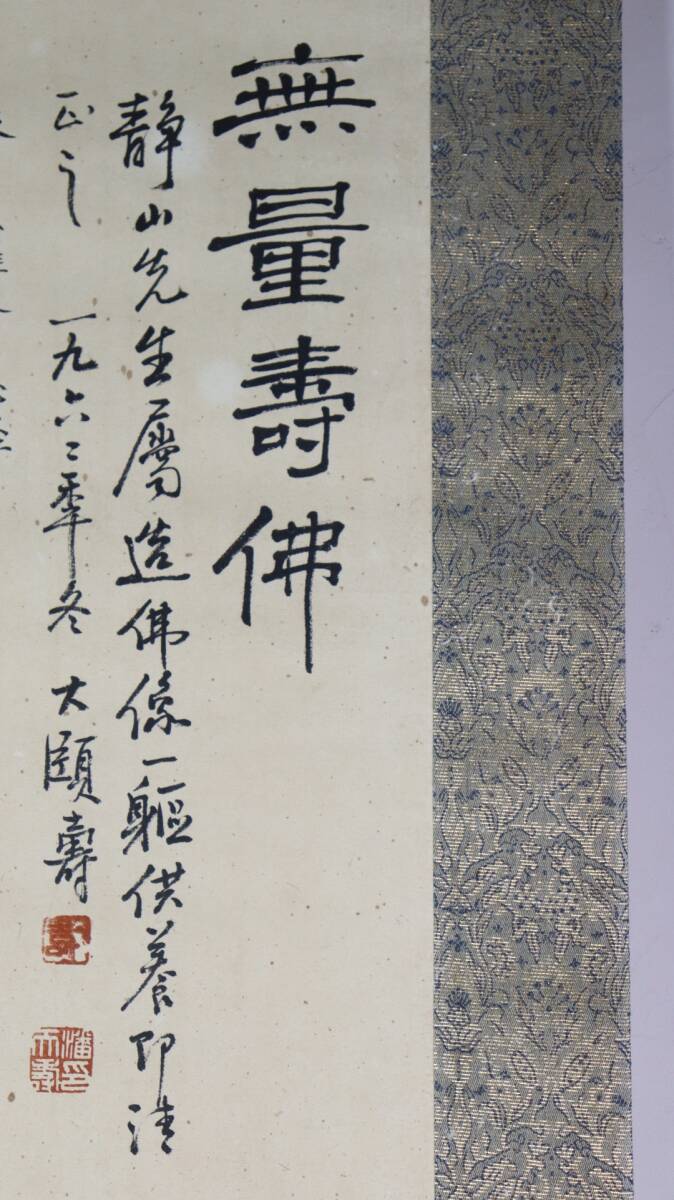 無量壽佛
静山先生屬造佛像一軀供養即請
正之 一九六二年冬 大頤壽